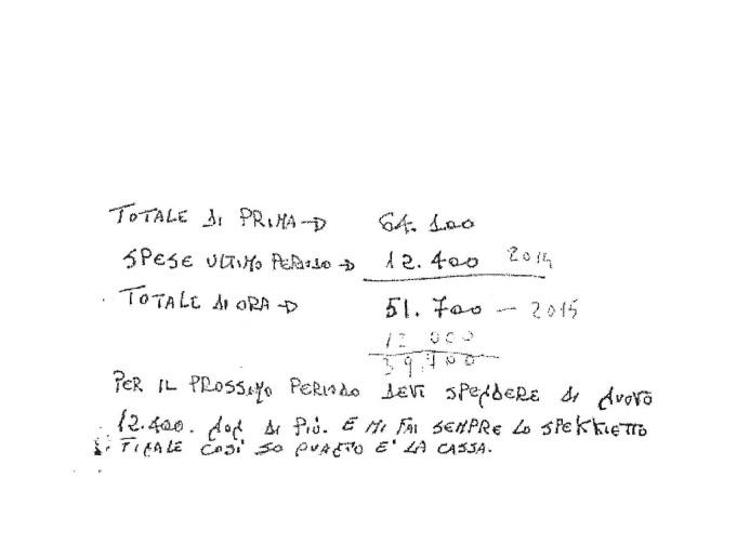 TOTALE DI PRIMA → 64.100
SPESE ULTIMO PERIODO → 12.400 2014
TOTALE DI ORA → 51.700 — 2015
12 000
39,700
PER IL PROSSIMO PERIODO DEVI SPENDERE DI NUOVO
12.400. NON DI PIÙ. E MI FAI SEMPRE LO SPEKKIETTO
COSÌ SO QUANTO E' LA CASSA.